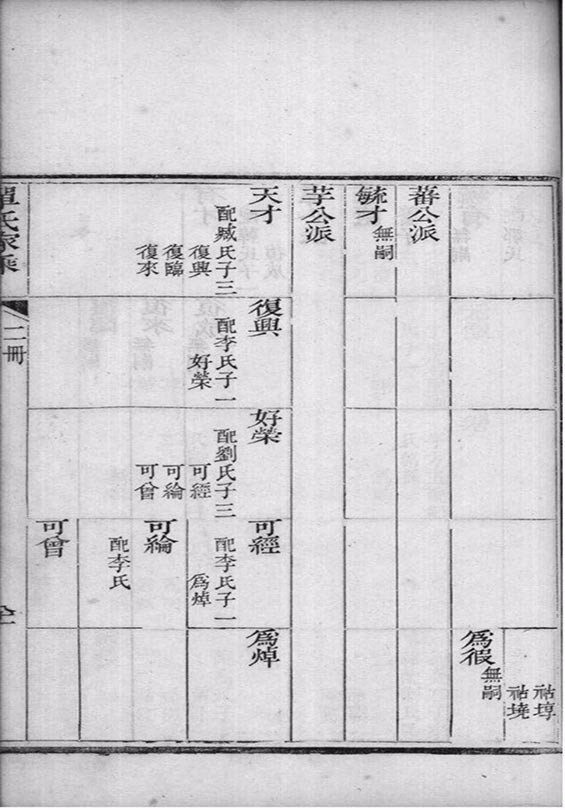 蕃公派
毓才
無嗣
芓公派
天才
配臧氏子三
復興
復臨
復來
復興
配李氏子一
好榮
好榮
配劉氏子三
可經
可綸
可曾
可經
配李氏子一
爲焯
可綸
配李氏
可曾
祜埻
祜墝
爲徦
無嗣
爲焯
單氏家乘
二冊